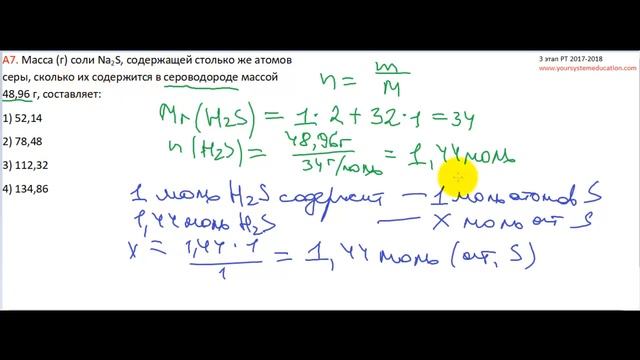 А7. Масса (г) соли Na₂S, содержащей столько же атомов
серы, сколько их содержится в сероводороде массой
48,96 г, составляет:
1) 52,14
2) 78,48
3) 112,32
4) 134,86
3 этап РТ 2017-2018
www.yoursystemeducation.com
n = m/M
Mr(H₂S) = 1·2 + 32·1 = 34
n(H₂S) = 48,96г / 34 г/моль = 1,44 моль
1 моль H₂S содержит — 1 моль атомов S
1,44 моль H₂S — x моль ат S
x = 1,44·1 / 1 = 1,44 моль (ат. S)